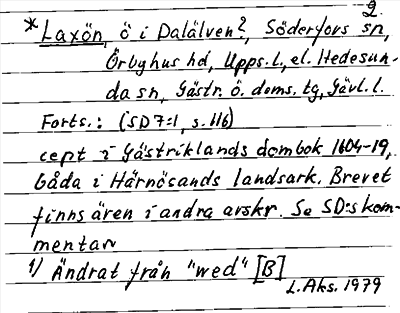 2.
*Laxön, ö i Dalälven?, Söderfors sn,
Örbyhus hd, Upps.l, el. Hedesun-
da sn, Gästr. ö. doms. tg, Gävl. l.
Forts.: (SD7:1, s. 116)
cept i Gästriklands dombok 1604-19,
båda i Härnösands landsark. Brevet
finns ären i andra avskr. Se SD:s kom-
mentar
1) Ändrat från "wed" [B]
L. Aks. 1979